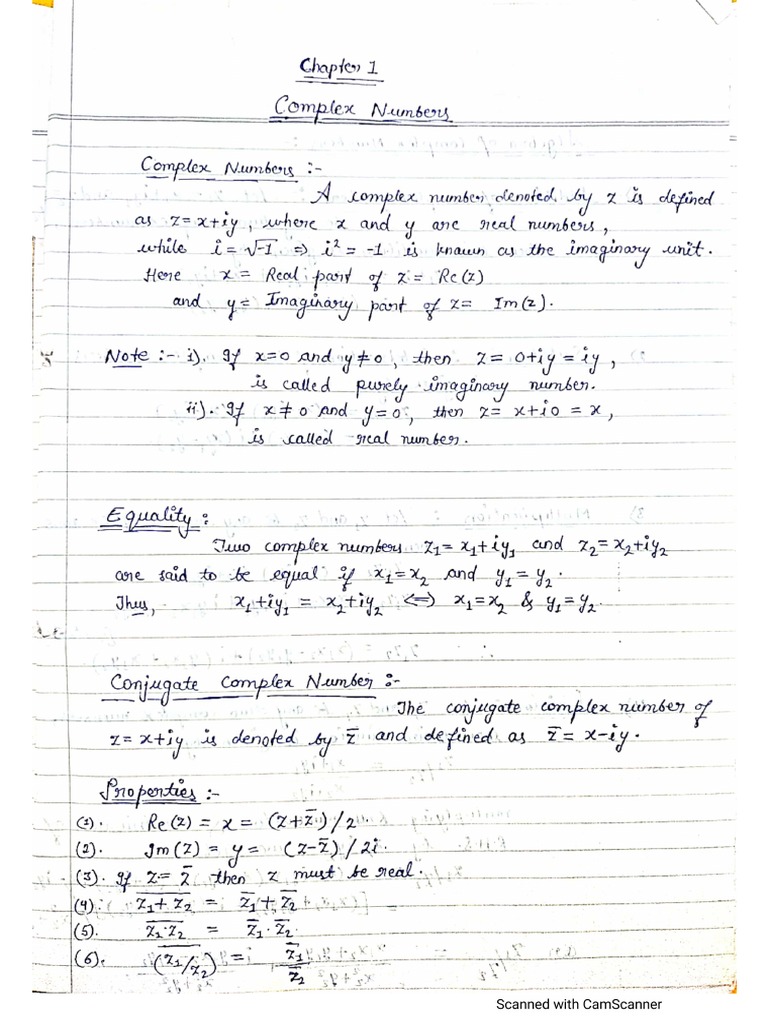 Chapter 1
Complex Numbers
Complex Numbers :-
A complex number, denoted by z is defined
as z = x+iy, where x and y are real numbers,
while i = √-1 ⇒ i² = -1 is known as the imaginary unit.
Here x = Real part of z = Re(z)
and y = Imaginary part of z = Im(z).
Note :- i). If x=0 and y≠0, then z = 0+iy = iy,
is called purely imaginary number.
ii). If x≠0 and y=0, then z = x+i0 = x,
is called real number.
Equality :
Two complex numbers z₁ = x₁+iy₁ and z₂ = x₂+iy₂
are said to be equal if x₁=x₂ and y₁=y₂.
Thus, x₁+iy₁ = x₂+iy₂ ⇔ x₁=x₂ & y₁=y₂.
Conjugate Complex Number :-
The conjugate complex number of
z = x+iy is denoted by z̅ and defined as z̅ = x-iy.
Properties :-
(1). Re(z) = x = (z+z̅)/2
(2). Im(z) = y = (z-z̅)/2i.
(3). If z = z̅ then z must be real.
(4). \overline{z₁+z₂} = z̅₁ + z̅₂
(5). \overline{z₁·z₂} = z̅₁·z̅₂.
(6). \overline{(z₁/z₂)} = z̅₁/z̅₂
Scanned with CamScanner